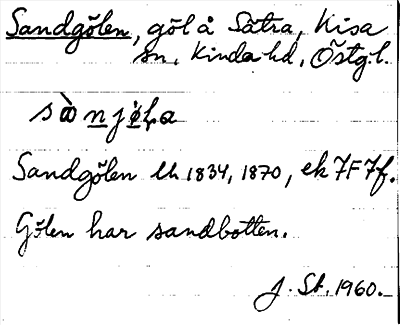 Sandgölen, göl å Sätra, Kisa
sn, Kinda hd, Östg.l.
Sandgölen lk 1834, 1870, ek 7F7f.
Gölen har sandbotten.
J. St. 1960.